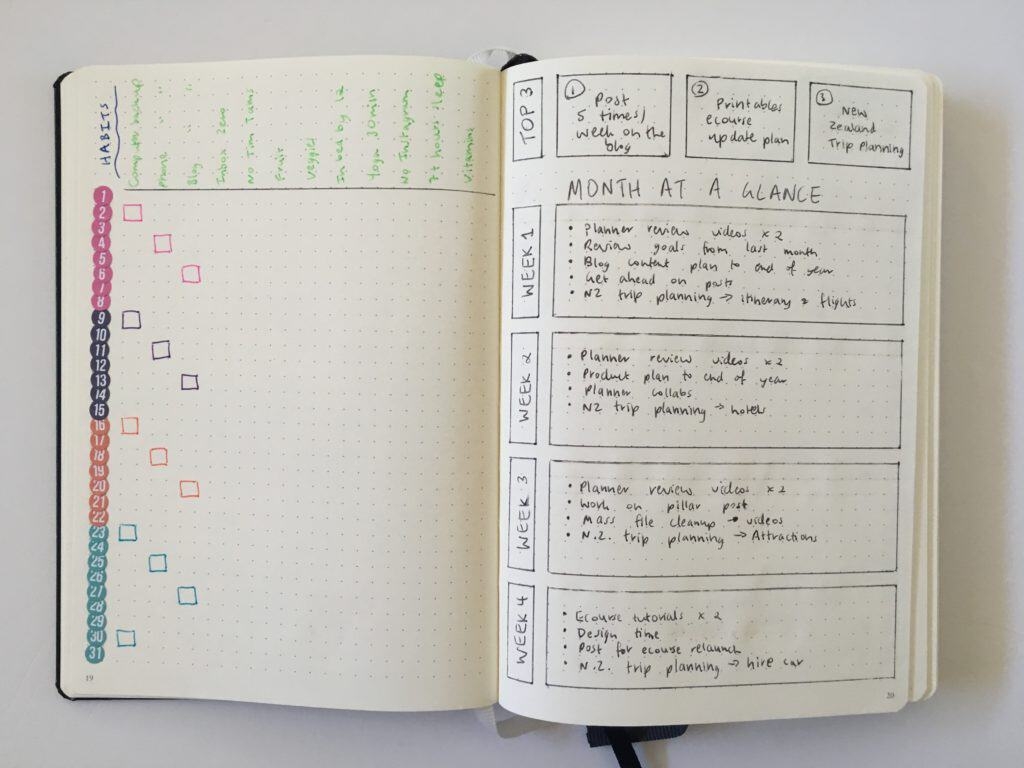 HABITS
Computer backup
Phone " "
Blog " "
Inbox Zero
No Tim Tams
Fruit
Veggies
In bed by 12
Yoga 30 min
No Instagram
7+ hours sleep
Vitamins
1
2
3
4
5
6
7
8
9
10
11
12
13
14
15
16
17
18
19
20
21
22
23
24
25
26
27
28
29
30
31
19
TOP 3
1
Post
5 times/
week on the
blog
2
Printables
ecourse
update plan
3
New
Zealand
Trip Planning
MONTH AT A GLANCE
WEEK 1
• Planner review videos x 2
• Review goals from last month
• Blog content plan to end of year
• Get ahead on posts
• NZ trip planning → itinerary & flights
WEEK 2
• Planner review videos x 2
• Product plan to end of year
• Planner collabs
• NZ trip planning → hotels
WEEK 3
• Planner review videos x 2
• Work on pillar post
• Mass file cleanup → videos
• N.Z. trip planning → Attractions
WEEK 4
• Ecourse tutorials x 2
• Design time
• Post for ecourse relaunch
• N.Z. trip planning → hire car
20